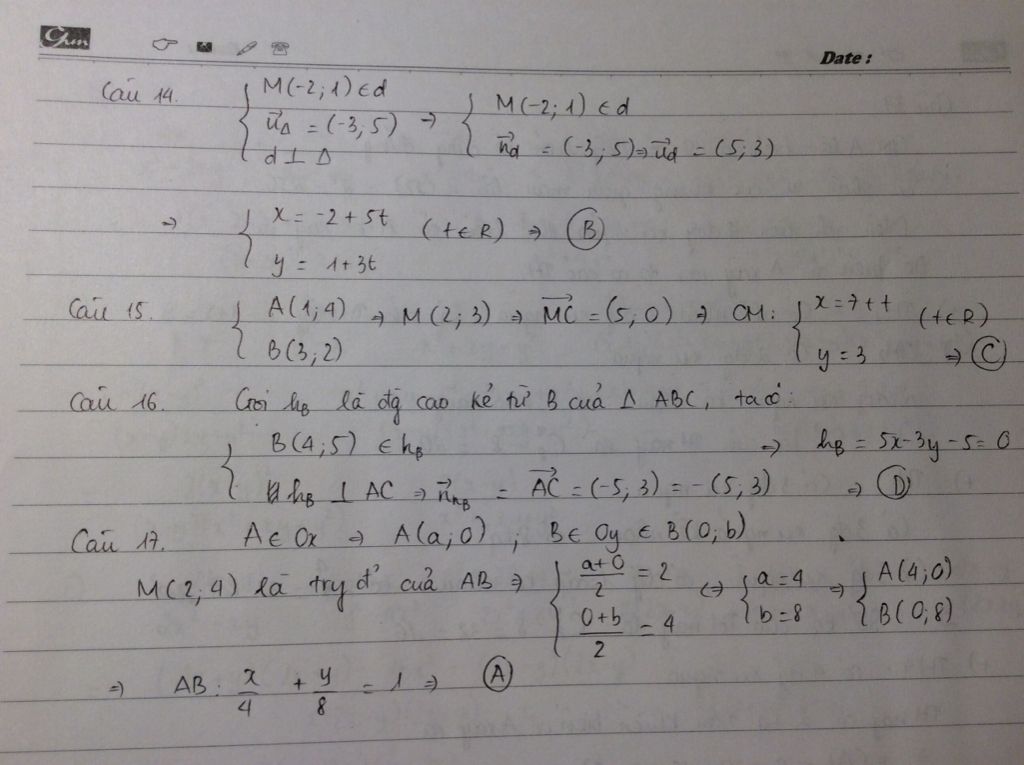 Date :
Câu 14. { M(-2; 1) ∈ d ; u⃗_Δ = (-3; 5) ; d ⊥ Δ → { M(-2; 1) ∈ d ; n⃗_d = (-3; 5) ⇒ u⃗_d = (5; 3)
⇒ { x = -2 + 5t ; y = 1+3t (t ∈ R) ⇒ (B)
Câu 15. { A(1; 4) ; B(3; 2) ⇒ M(2; 3) ⇒ MC⃗ = (5; 0) ⇒ CM: { x = 7+t ; y = 3 (t∈R) ⇒ (C)
Câu 16. Gọi h_B là đg cao kẻ từ B của Δ ABC, ta có:
{ B(4; 5) ∈ h_B ; h_B ⊥ AC ⇒ n⃗_h_B = AC⃗ = (-5; 3) = -(5; 3) ⇒ h_B = 5x-3y-5=0 ⇒ (D)
Câu 17. A ∈ Ox ⇒ A(a; 0) ; B ∈ Oy ∈ B(0; b)
M(2; 4) là trg đ' của AB ⇒ { (a+0)/2 = 2 ; (0+b)/2 = 4 ⇔ { a = 4 ; b = 8 ⇒ { A(4; 0) ; B(0; 8)
⇒ AB: x/4 + y/8 = 1 ⇒ (A)